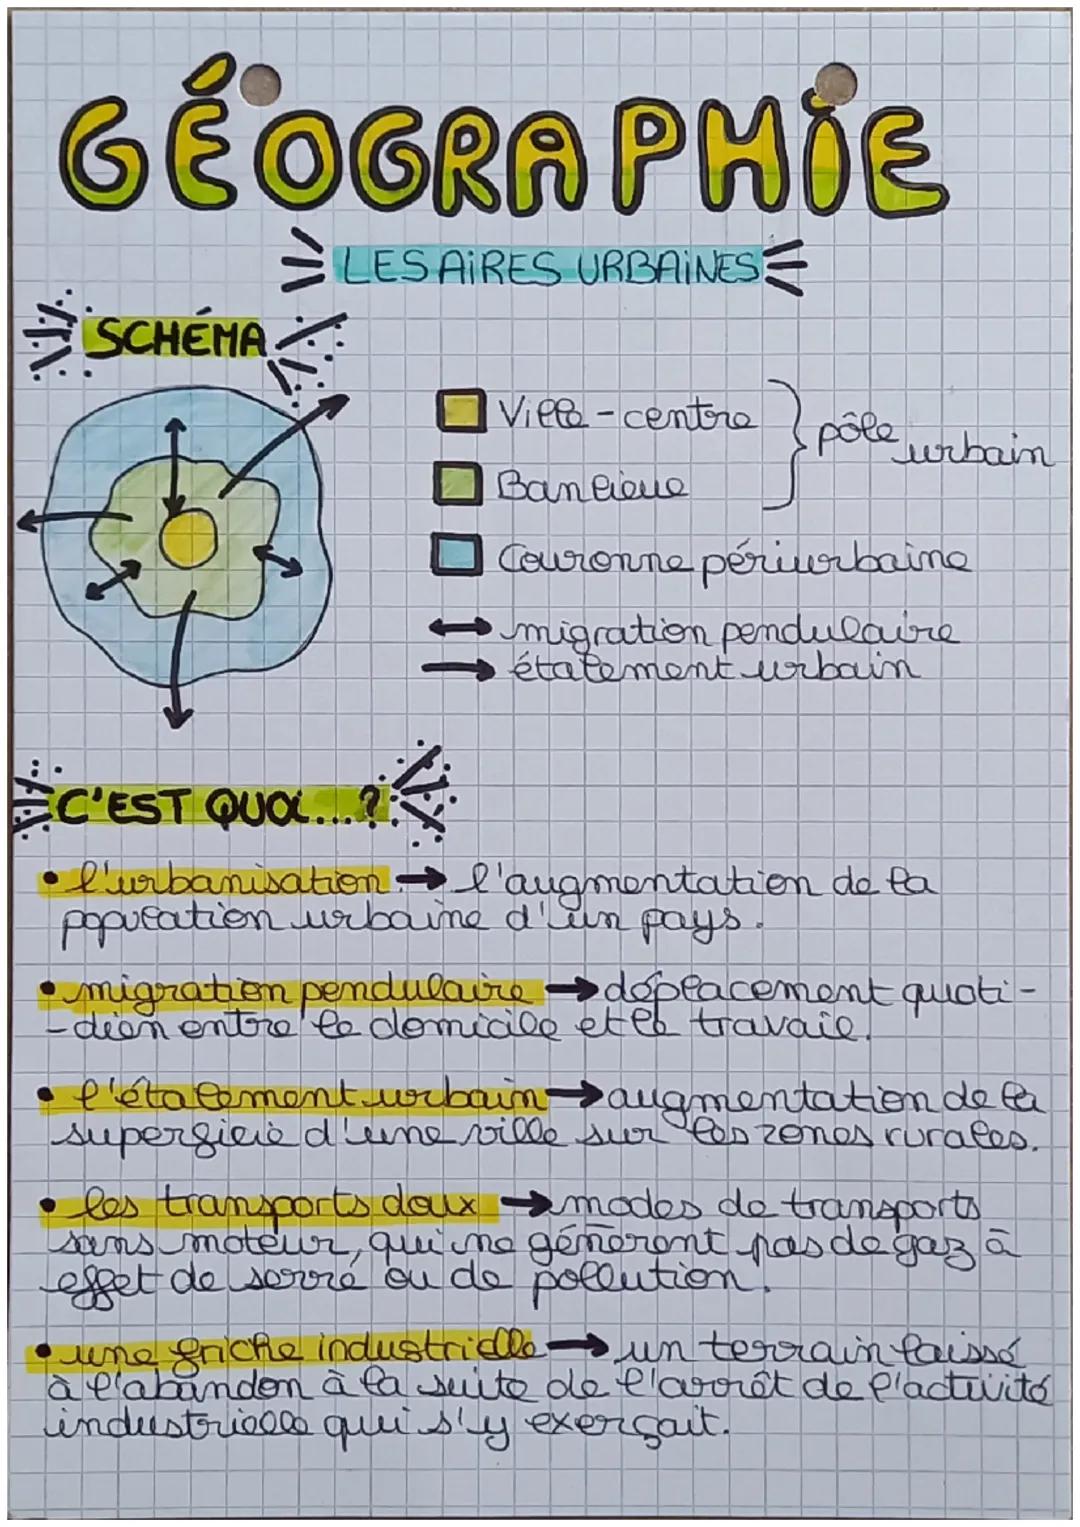 GÉOGRAPHIE
LES AIRES URBAINES
SCHÉMA
Ville-centre
Banlieue
pôle urbain
Couronne périurbaine
migration pendulaire
étalement urbain
C'EST QUOI...?
• l'urbanisation → l'augmentation de la
population urbaine d'un pays.
• migration pendulaire → déplacement quoti-
-dien entre le domicile et le travail.
• l'étalement urbain → augmentation de la
superficie d'une ville sur les zones rurales.
• les transports doux → modes de transports
sans moteur, qui ne génèrent pas de gaz à
effet de serre ou de pollution.
• une friche industrielle → un terrain laissé
à l'abandon à la suite de l'arrêt de l'activité
industrielle qui s'y exerçait.